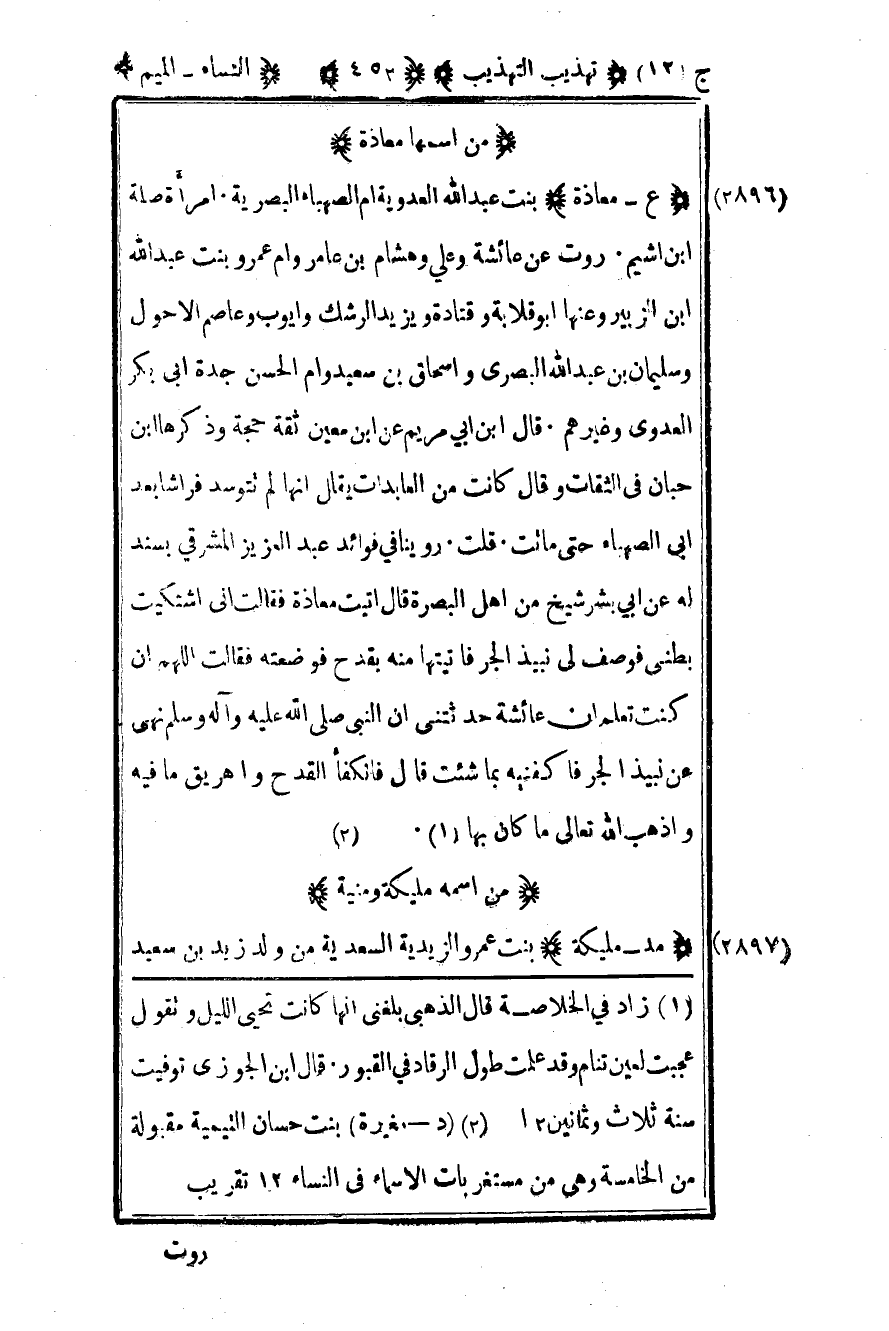 ج (١٢) ﴿ تهذيب التهذيب ﴾ ﴿ ٤٥٢ ﴾ ﴿ النساء ـ الميم ﴾
﴿ من اسمها معاذة ﴾
(٢٨٩٦) ﴿ ع ـ معاذة ﴾ بنت عبد الله العدوية ام الصهباء البصرية ٠ امرأة صلة
ابن اشيم ٠ روت عن عائشة وعلي وهشام بن عامر وام عمرو بنت عبد الله
ابن الزبير وعنها ابو قلابة و قتادة و يزيد الرشك وايوب وعاصم الاحول
وسليمان بن عبد الله البصرى و اسحاق بن سعيد وام الحسن جدة ابى بكر
العدوى وغيرهم ٠ قال ابن ابي مريم عن ابن معين ثقة حجة وذكرها ابن
حبان فى الثقات و قال كانت من العابدات يقال انها لم تتوسد فراشا بعد
ابى الصهباء حتى ماتت ٠ قلت ٠ روينا في فوائد عبد العزيز المشرقي بسند
له عن ابي بشر شيخ من اهل البصرة قال اتيت معاذة فقالت انى اشتكيت
بطنى فوصف لى نبيذ الجر فاتيتها منه بقدح فوضعته فقالت اللهم ان
كنت تعلم ان عائشة حدثتنى ان النبى صلى الله عليه وآله وسلم نهى
عن نبيذ الجر فاكفنيه بما شئت قال فانكفأ القدح و اهريق ما فيه
و اذهب الله تعالى ما كان بها (١) ٠ (٢)
﴿ من اسمه مليكة ومنية ﴾
(٢٨٩٧) ﴿ مد ـ مليكة ﴾ بنت عمرو الزيدية السعدية من ولد زيد بن سعيد
(١) زاد في الخلاصة قال الذهبى بلغنى انها كانت تحيى الليل و تقول
عجبت لعين تنام وقد علمت طول الرقاد في القبور ٠ قال ابن الجوزى توفيت
سنة ثلاث وثمانين ١٢ (٢) (د — مغيرة) بنت حسان التيمية مقبولة
من الخامسة وهي من مستغربات الاسماء فى النساء ١٢ تقريب
روت